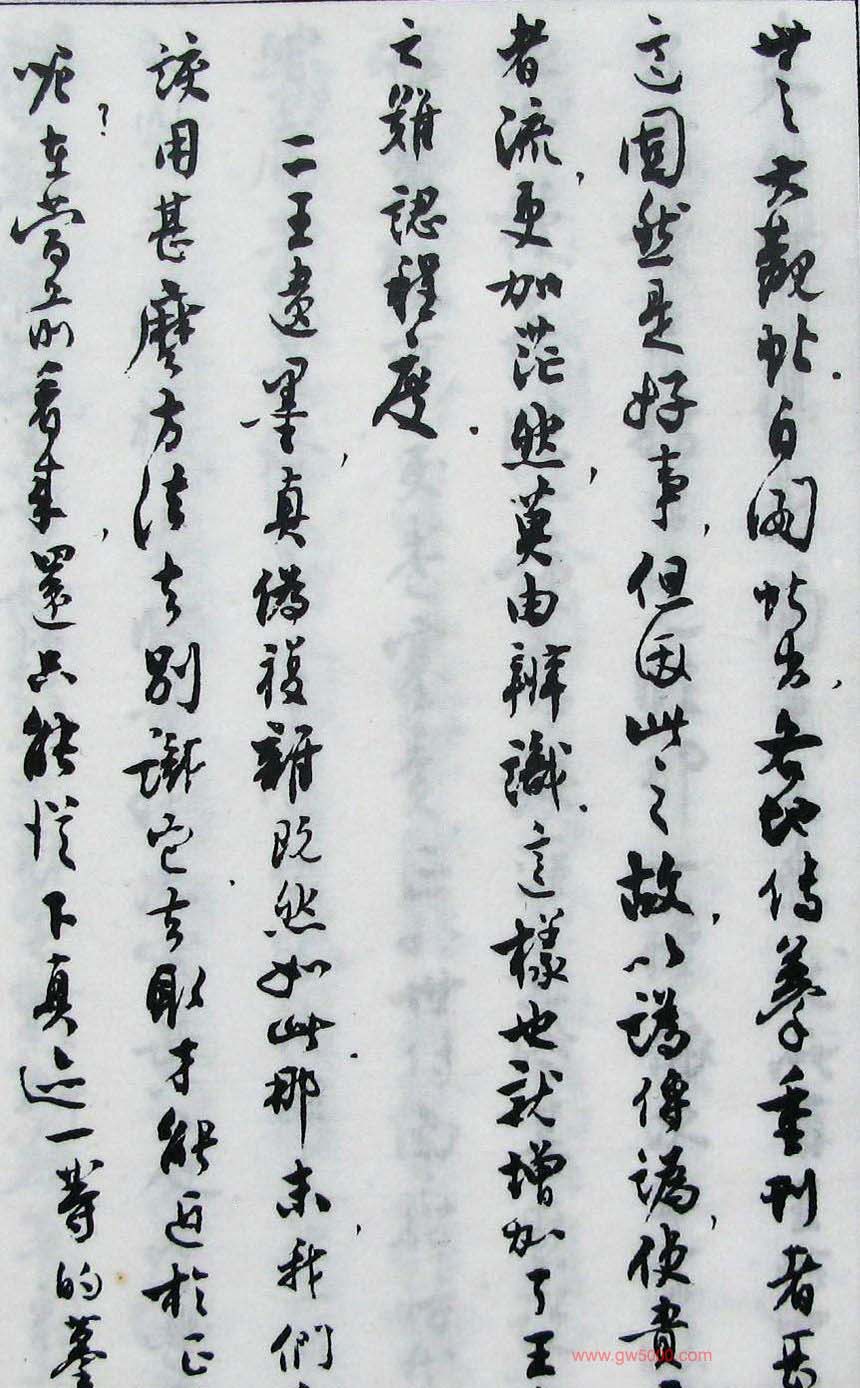 世之大觀帖．自閣帖出，各地傳摹重刊者甚
這固然是好事，但因此之故，以譌傳譌，使貴
者流，更加茫然，莫由辨識．這樣也就增加了王
之難認程度．
二王遺墨，真偽複雜既然如此．那末，我們
該用甚麼方法去別識它．去取才能近於正
呢？在當前看來，還只能從下真迹一等的摹
www.gw5000.com